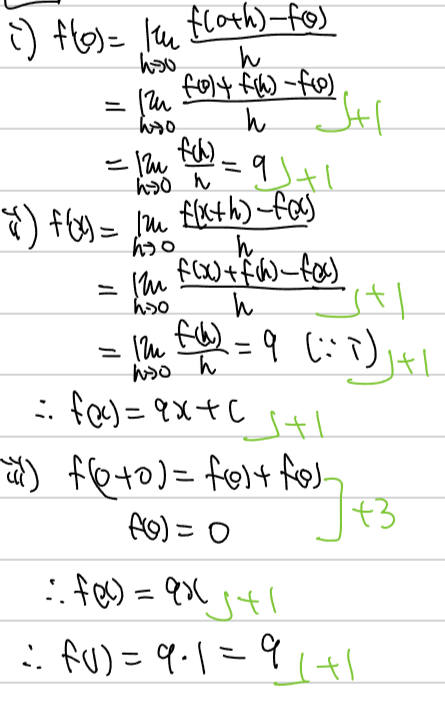 i) f'(0) = lim h→0 f(0+h)-f(0) / h
= lim h→0 f(0)+f(h)-f(0) / h +1
= lim h→0 f(h) / h = 9 +1
ii) f'(x) = lim h→0 f(x+h)-f(x) / h
= lim h→0 f(x)+f(h)-f(x) / h +1
= lim h→0 f(h) / h = 9 (∵ i) +1
∴ f(x) = 9x+C +1
iii) f(0+0) = f(0)+f(0)
f(0) = 0 +3
∴ f(x) = 9x +1
∴ f(1) = 9·1 = 9 +1